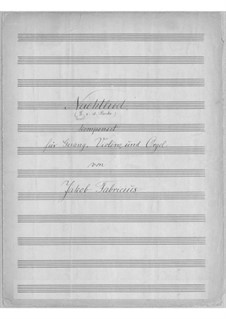 Nachtlied
komponiert
für Gesang, Violine und Orgel
von
Jakob Fabricius